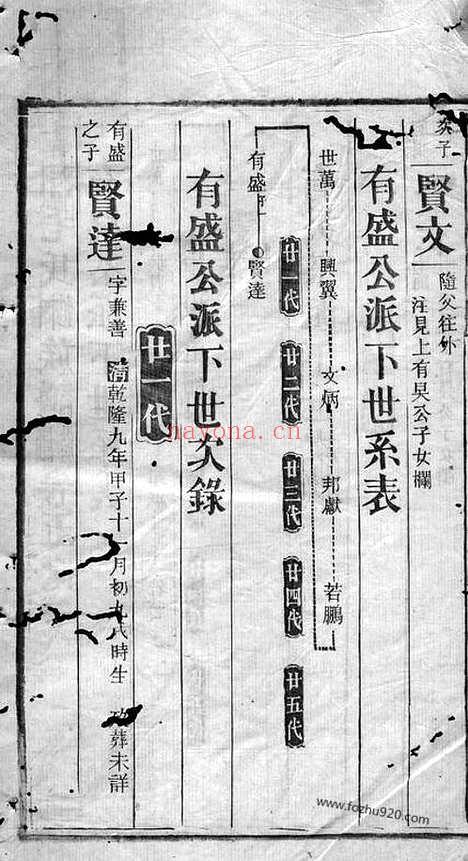 賢文 隨父往外
注見上有杲公子女欄
有盛公派下世系表
世萬 興翼 文炳 邦獻 若鵬
廿一代 廿二代 廿三代 廿四代 廿五代
有盛 賢達
有盛公派下世次錄
廿一代
有盛
之子
賢達 字兼善 清乾隆九年甲子十一月初九戌時生 葬未詳
nayona.cn
www.fozhu920.com